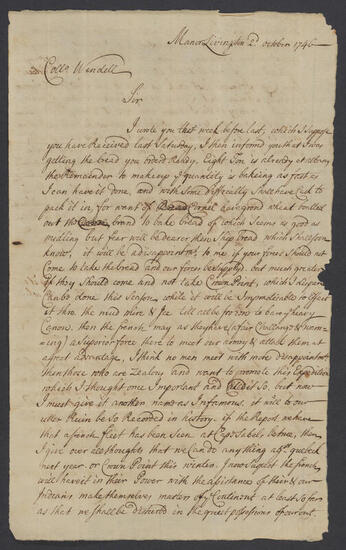 Manor Livingston 2d. october 1746
Collo. Wendell
Sir
I wrote you that week before last, which I Suppose
you have Received last Saturday, I then informd you that I was
getting the bread you ordered Ready, Eight Ton is already at albany
the Remainder to makeup quantity is bakeing as fast as
I can have it done, and with some difficulty shall have cask to
pack it in, for want of
out the brand to bake bread of which seems is good as
midling but fear will be dearer then Ship bread which I shall soon
know, it will be a disapointmt. to me if your forces should not
Come to take the bread and our forces be Supplyd. but much greater
if they Should come and not take Crown Point, which I
Can be done this Season, while it will be Impracticable to Effect
it thro. the mud mire & for heavy
Canons, then the french may as they have a fair Challenge
a Superior force there to meet our army & attack them at
a great advantage, I think no men meet with more disapointmt.
then those who are Zealous and want to promote this Expedition
which I thought once Important and calld it So, but now
I must give it another name as Infamous, it will to our
utter Ruin be so Recorded in history, if the Report we have
that a french fleet has been Seen at Cape Sables be true, then
I give over all thoughts that we can do any thing agt. quebeck
next year. or Crown Point this winter. for no Sugest the french
will have it in their Power with the assistance of their & our
Indians make themselves masters of Continent at least So far
as that we shall be disturbed in the quiet possesions of our